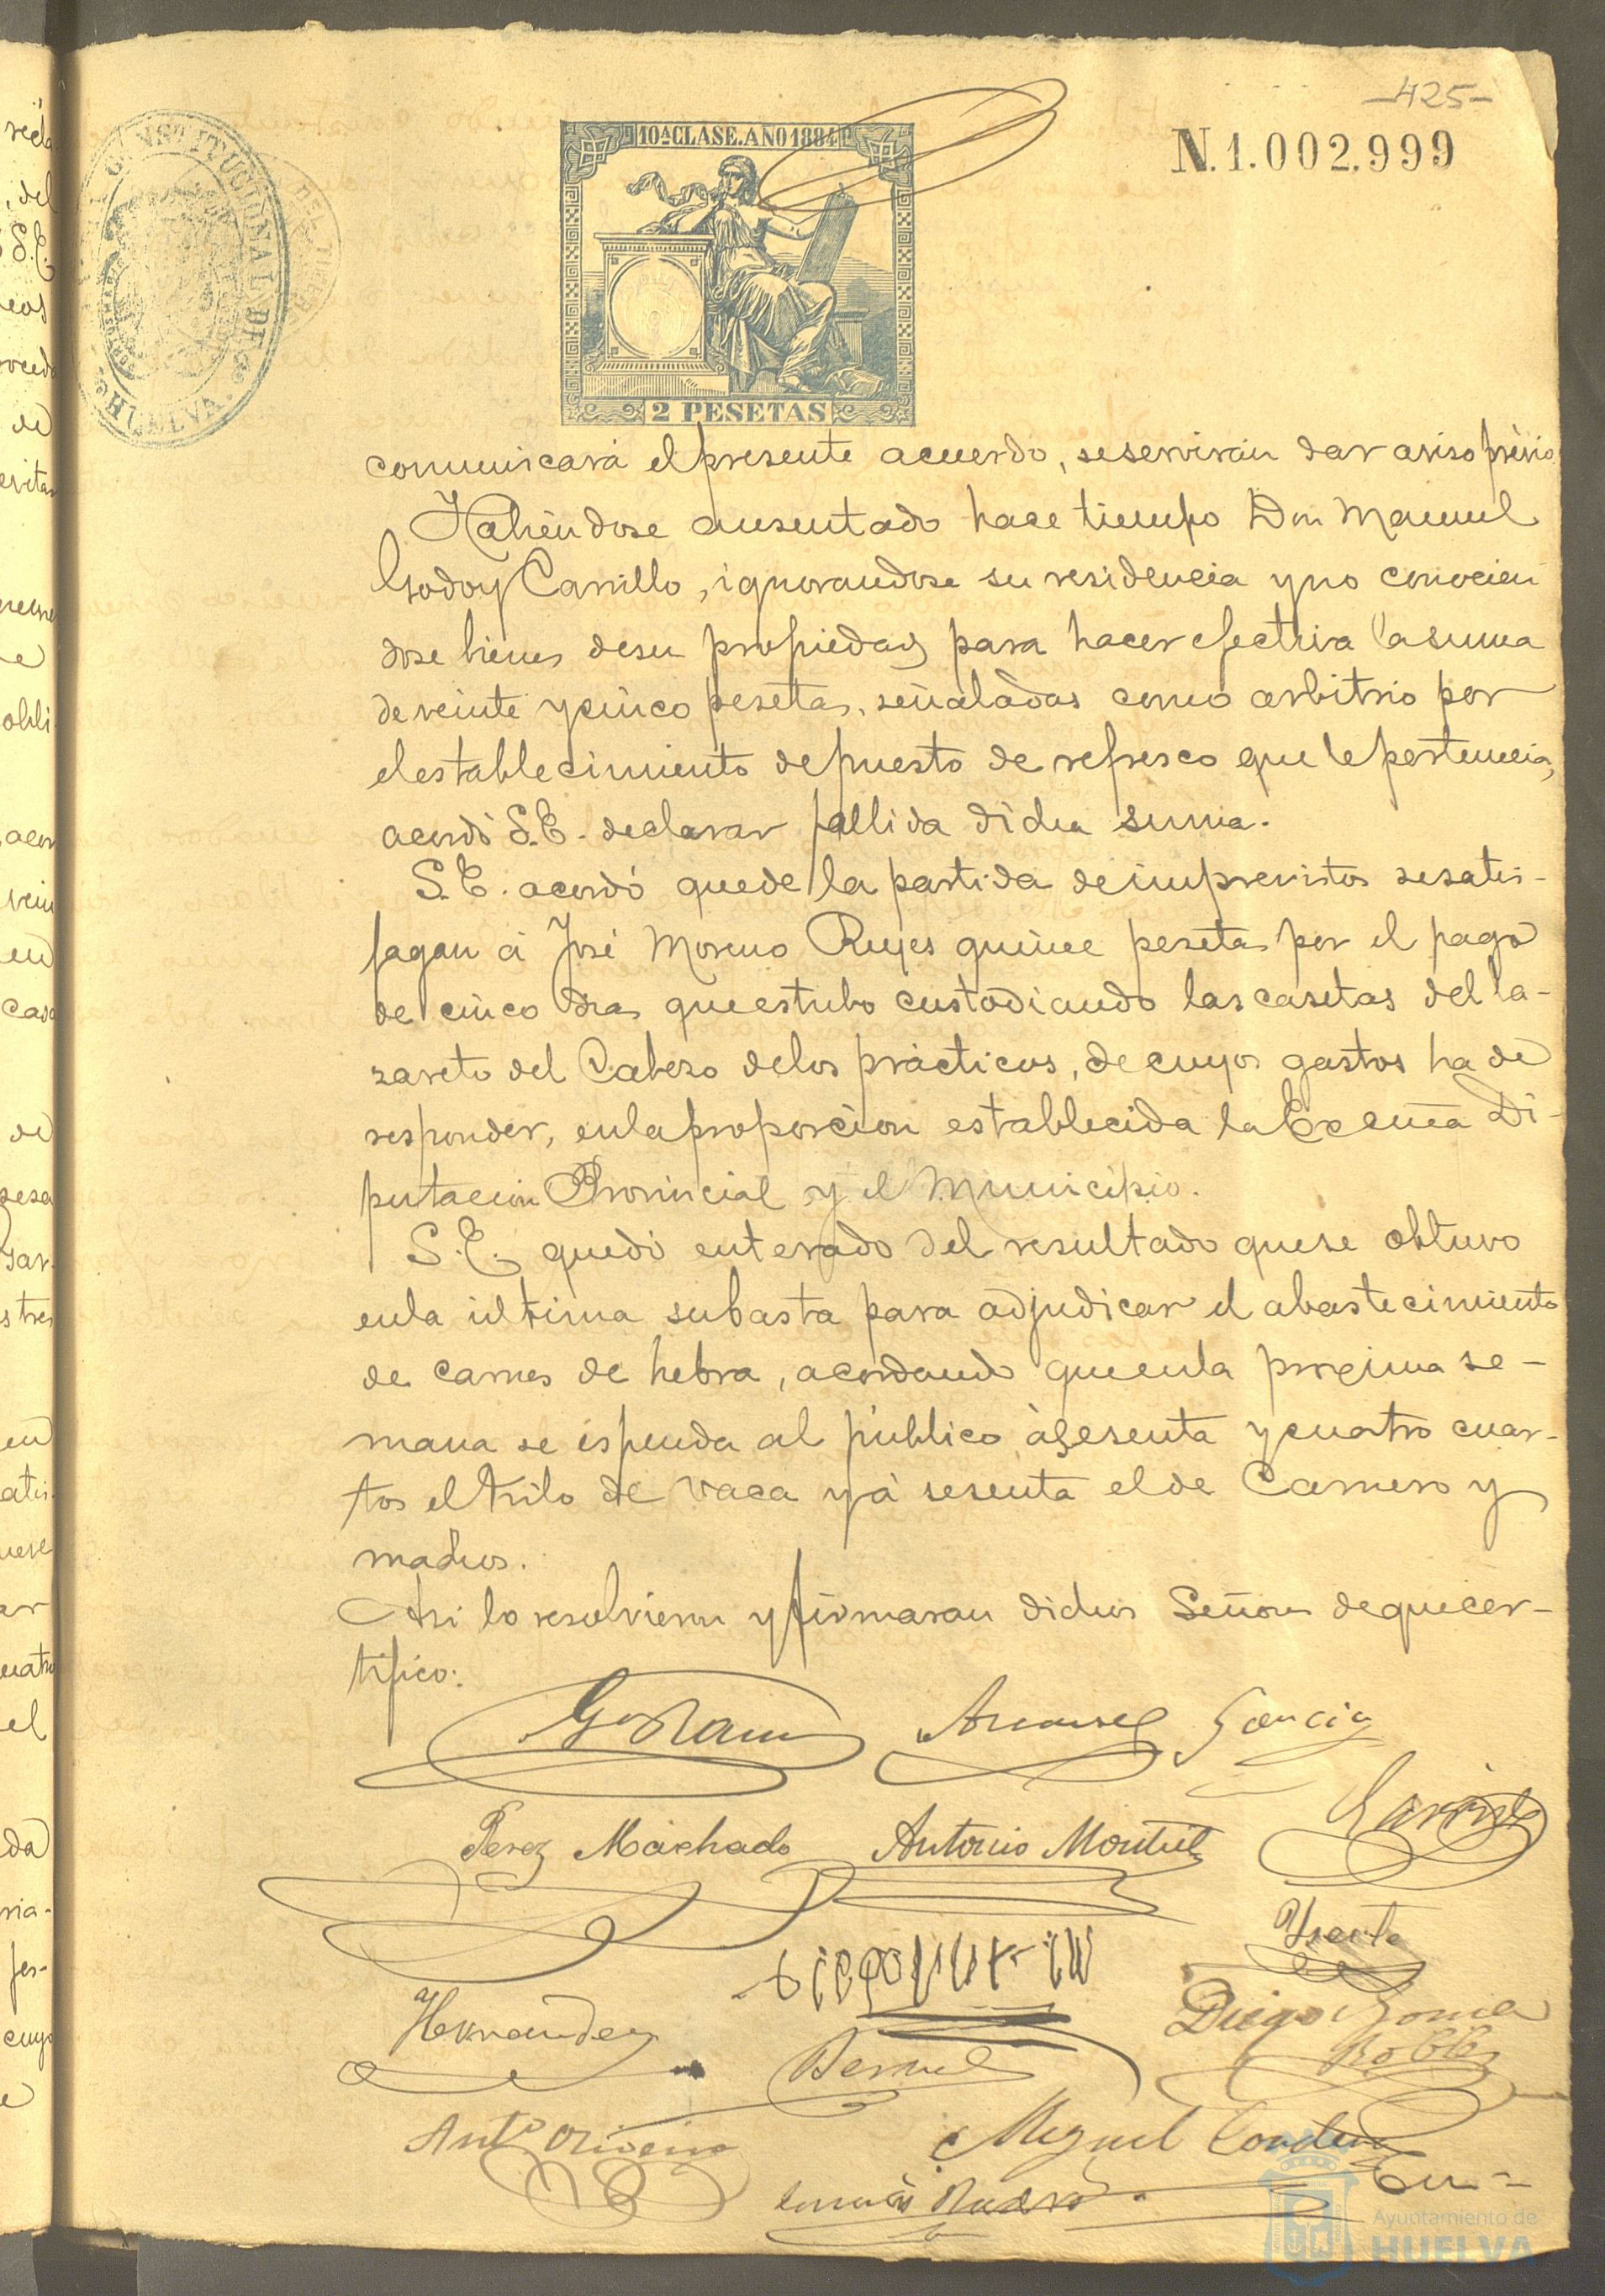 -425-
N.1.002.999
10ª CLASE.AÑO 1884
CONSTITUCIONAL DE
HUELVA.
2 PESETAS
comunicará el presente acuerdo, se servirán dar aviso prévio
Habiéndose ausentado hace tiempo Don Manuel
Godoy Carrillo, ignorandose su residencia y no conocien
dose bienes de su propiedad para hacer efectiva la suma
de veinte y cinco pesetas, señaladas como arbitrio por
el establecimiento de puesto de refresco que le pertenecia,
acordó S.E. declarar fallida dicha suma.
S.E. acordó que de la partida de imprevistos se satis-
fagan á José Moreno Reyes quince pesetas por el pago
de cinco dias que estubo custodiando las casetas del la-
zareto del Cabezo de los prácticos, de cuyos gastos ha de
responder, en la proporcion establecida la Excma Di-
putacion Provincial y el Municipio.
S.E. quedó enterado del resultado que se obtuvo
en la última subasta para adjudicar el abastecimiento
de carnes de hebra, acordando que en la proxima se-
mana se espenda al público á sesenta y cuatro cuar-
tos el kilo de vaca y á sesenta el de Carnero y
machos.
Asi lo resolvieron y firmaran dichos Señores de que cer-
tifico:
García
Perez Machado
Antonio Montiel
Hernandez
Diego Garcia
Robles
Bernal
Antº
Miguel
Ayuntamiento de
HUELVA